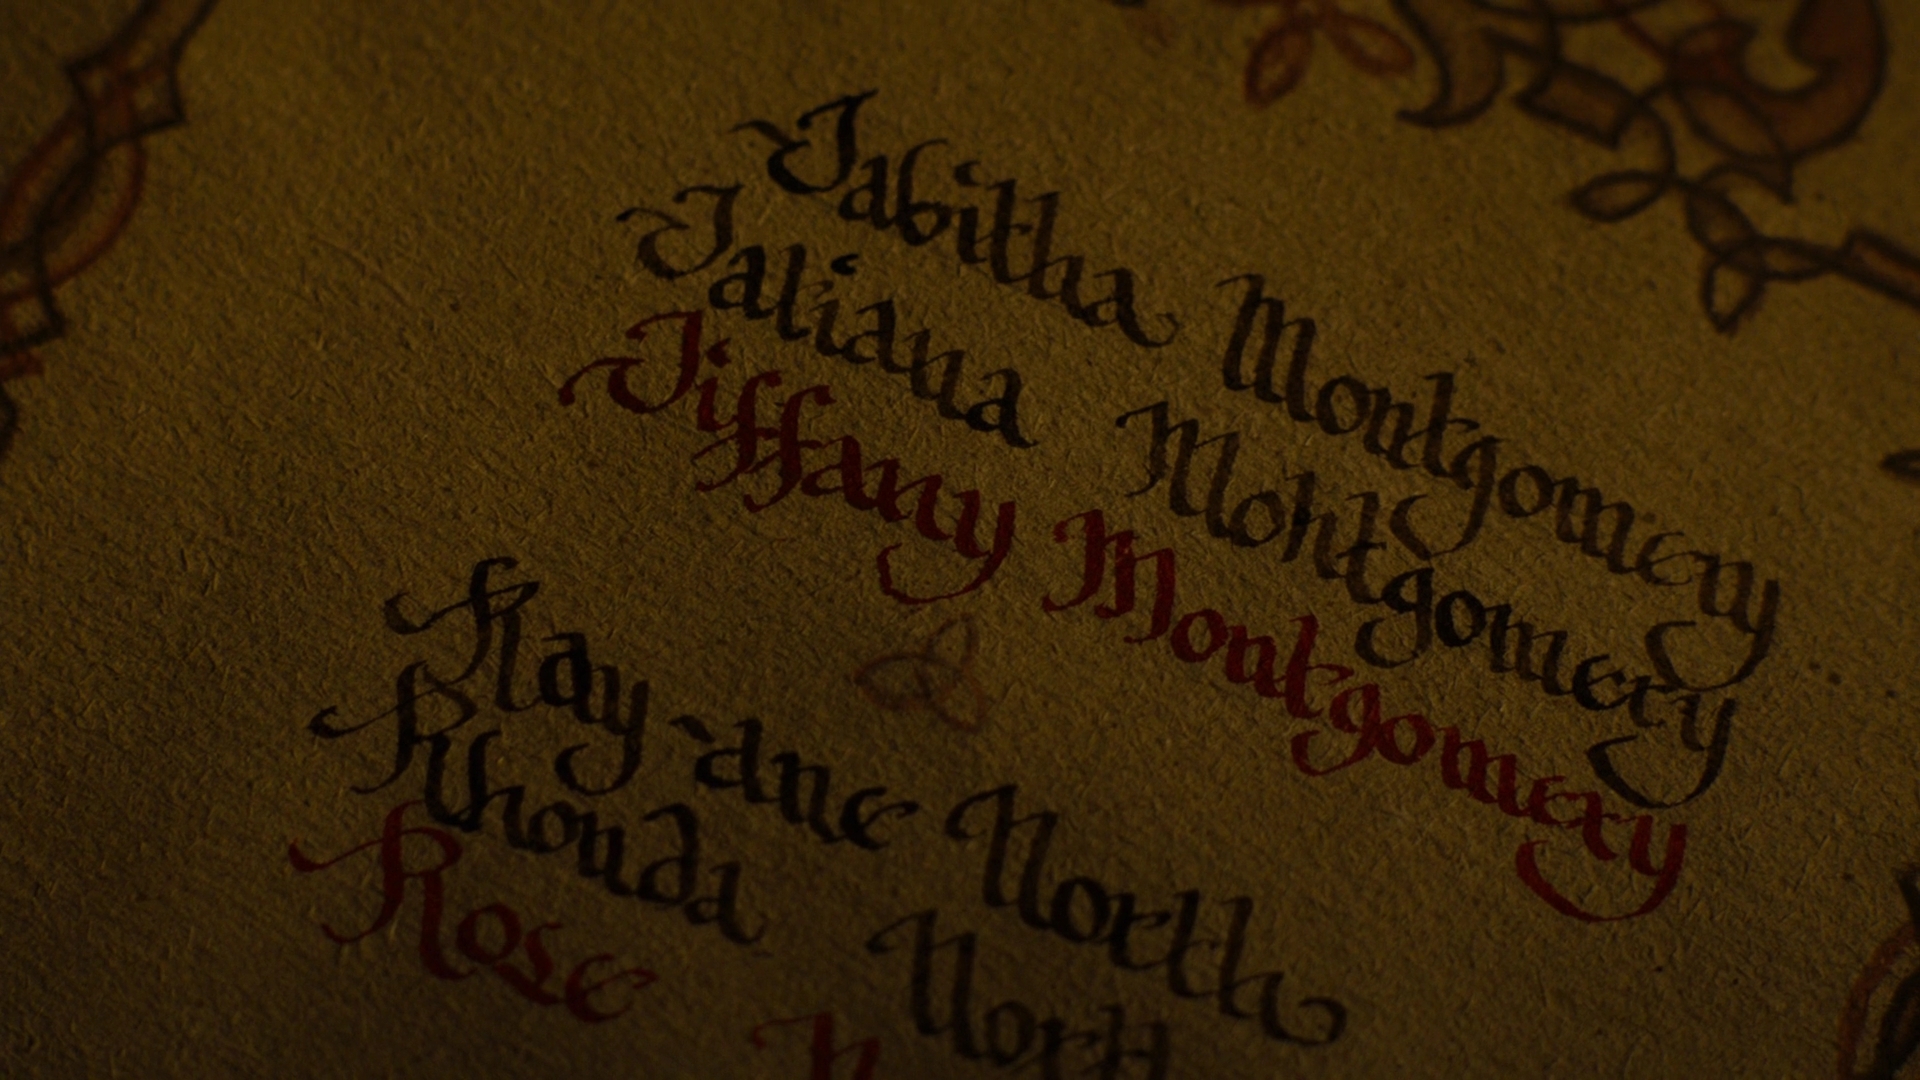 Tabitha Montgomery
Tatiana Montgomery
Tiffany Montgomery
Ray'dne North
Rhonda North
Rose N